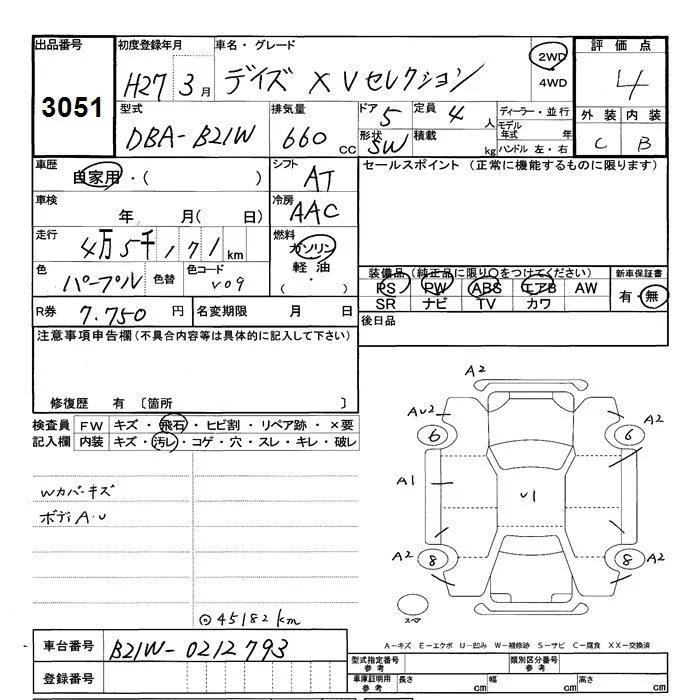 出品番号 初度登録年月 車名・グレード 2WD 評価点
3051 H27 3月 デイズ X Vセレクション 4WD 4
型式 排気量 ドア 5 定員 4人 ディーラー・並行 外装 内装
DBA-B21W 660cc 形状 SW 積載 kg モデル年式 年 C B
ハンドル 左・右
車歴 自家用・( ) シフト AT セールスポイント (正常に機能するものに限ります)
車検 年 月( 日) 冷房 AAC
走行 4万5千171km 燃料 ガソリン
軽油
・( )
色 パープル 色替 色コード V09 装備品(純正品に限り○をつけてください) 新車保証書
PS PW ABS エアB AW 有・無
SR ナビ TV カワ
R券 7.750円 名変期限 月 日 後日品
注意事項申告欄(不具合内容等は具体的に記入して下さい)
修復歴 有 〔箇所 〕
検査員 FW キズ・飛石・ヒビ割・リペア跡・×要
記入欄 内装 キズ・汚レ・コゲ・穴・スレ・キレ・破レ
Wカバーキズ
ボディA・U
◎45182km
A2
AU2 A2
6 6
A1 U1
A2 8 8 A2
スペア
A-キズ E-エクボ U-凹み W-補修跡 S-サビ C-腐食 XX-交換済
車台番号 B21W-0212793
登録番号
型式指定番号 参考 類別区分番号 参考
車庫証明用 参考 長さ cm 幅 cm 高さ cm